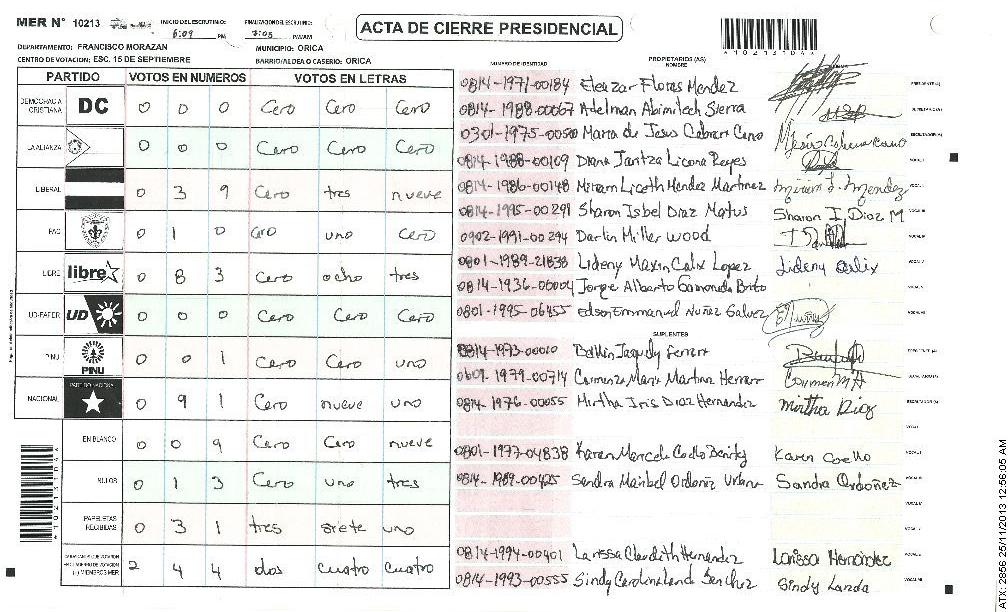 MER N° 10213
INICIO DEL ESCRUTINIO: 6:09 PM
FINALIZACION DEL ESCRUTINIO: 7:05 PM/AM
ACTA DE CIERRE PRESIDENCIAL
*102131044*
DEPARTAMENTO: FRANCISCO MORAZAN
MUNICIPIO: ORICA
CENTRO DE VOTACION: ESC. 15 DE SEPTIEMBRE
BARRIO/ALDEA O CASERIO: ORICA
PARTIDO VOTOS EN NUMEROS VOTOS EN LETRAS
DEMOCRACIA CRISTIANA DC 0 0 0 Cero Cero Cero
LA ALIANZA 0 0 0 Cero Cero Cero
LIBERAL 0 3 9 Cero tres nueve
PAC 0 1 0 Cero uno Cero
LIBRE libre 0 8 3 Cero ocho tres
UD-FAPER UD 0 0 0 Cero Cero Cero
PINU PINU 0 0 1 Cero Cero uno
NACIONAL PARTIDO NACIONAL 0 9 1 Cero nueve uno
EN BLANCO 0 0 9 Cero Cero nueve
NULOS 0 1 3 Cero uno tres
PAPELETAS RECIBIDAS 0 3 1 tres siete uno
2 4 4 dos cuatro cuatro
NUMERO DE IDENTIDAD
PROPIETARIOS (AS)
NOMBRE
0814-1971-00184 Eleazar Flores Mendez
0814-1988-00067 Adelman Abimilech Sierra
0301-1975-00500 Maria de Jesus Cabrera Cano
0814-1988-00109 Diana Jaritza Licona Reyes
0814-1986-00148 Miriam Liceth Mendez Martinez Miriam L. Mendez
0814-1995-00291 Sharon Isbel Diaz Matus Sharon I. Diaz M
0902-1991-00294 Darlin Miller Wood
0801-1989-21838 Lideny Maxin Calix Lopez Lideny Calix
0814-1936-00004 Jorge Alberto Brito
0801-1995-06455 Edson Emmanuel Nuñez Galvez
SUPLENTES
0814-1973-00010
0609-1979-00714 Carmenza Maria Martinez Herrera Carmen M H
0814-1976-00055 Mirtha Iris Diaz Hernandez Mirtha Diaz
0801-1977-04838 Karen Marcela Coello Benitez Karen Coello
0814-1989-00425 Sandra Maribel Ordoñez Urbina Sandra Ordoñez
0814-1994-00401 Larissa Claudeth Hernandez Larissa Hernández
0814-1993-00555 Sindy Carolina Landa Sanchez Sindy Landa
ATX: 2856 25/11/2013 12:56:05 AM